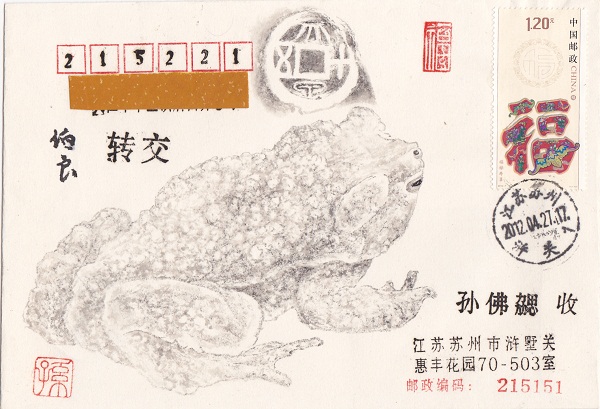 215221
伯良
转交
1.20元
中国邮政
CHINA
福
江苏苏州
2012.04.27.17
孙佛勰 收
江苏苏州市浒墅关
惠丰花园70-503室
邮政编码: 215151
孫